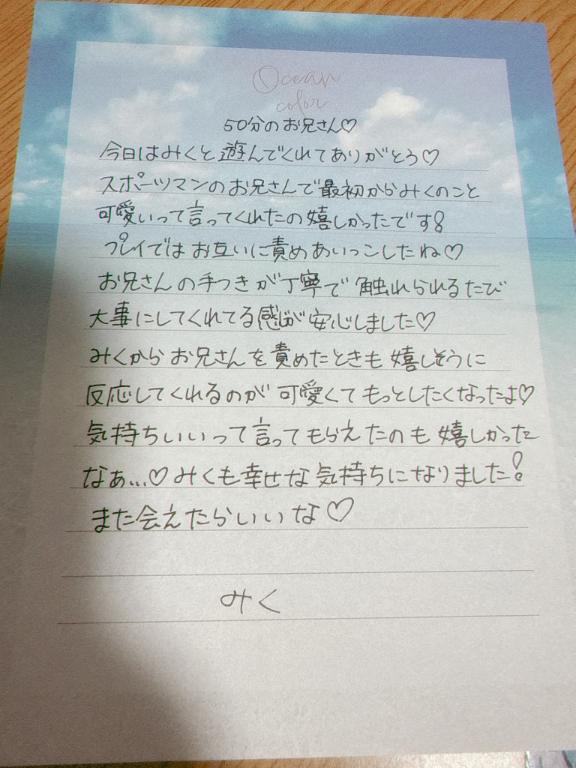 Ocean
color
50分のお兄さん♡
今日はみくと遊んでくれてありがとう♡
スポーツマンのお兄さんで最初からみくのこと
可愛いって言ってくれたの嬉しかったです!
プレイではお互いに責めあいっこしたね♡
お兄さんの手つきが丁寧で触れられるたび
大事にしてくれてる感じが安心しました♡
みくからお兄さんを責めたときも嬉しそうに
反応してくれるのが可愛くてもっとしたくなったよ♡
気持ちいいって言ってもらえたのも嬉しかった
なぁ...♡みくも幸せな気持ちになりました!
また会えたらいいな♡
みく